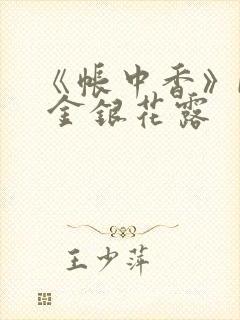 《帐中香》
金银花露
王少萍